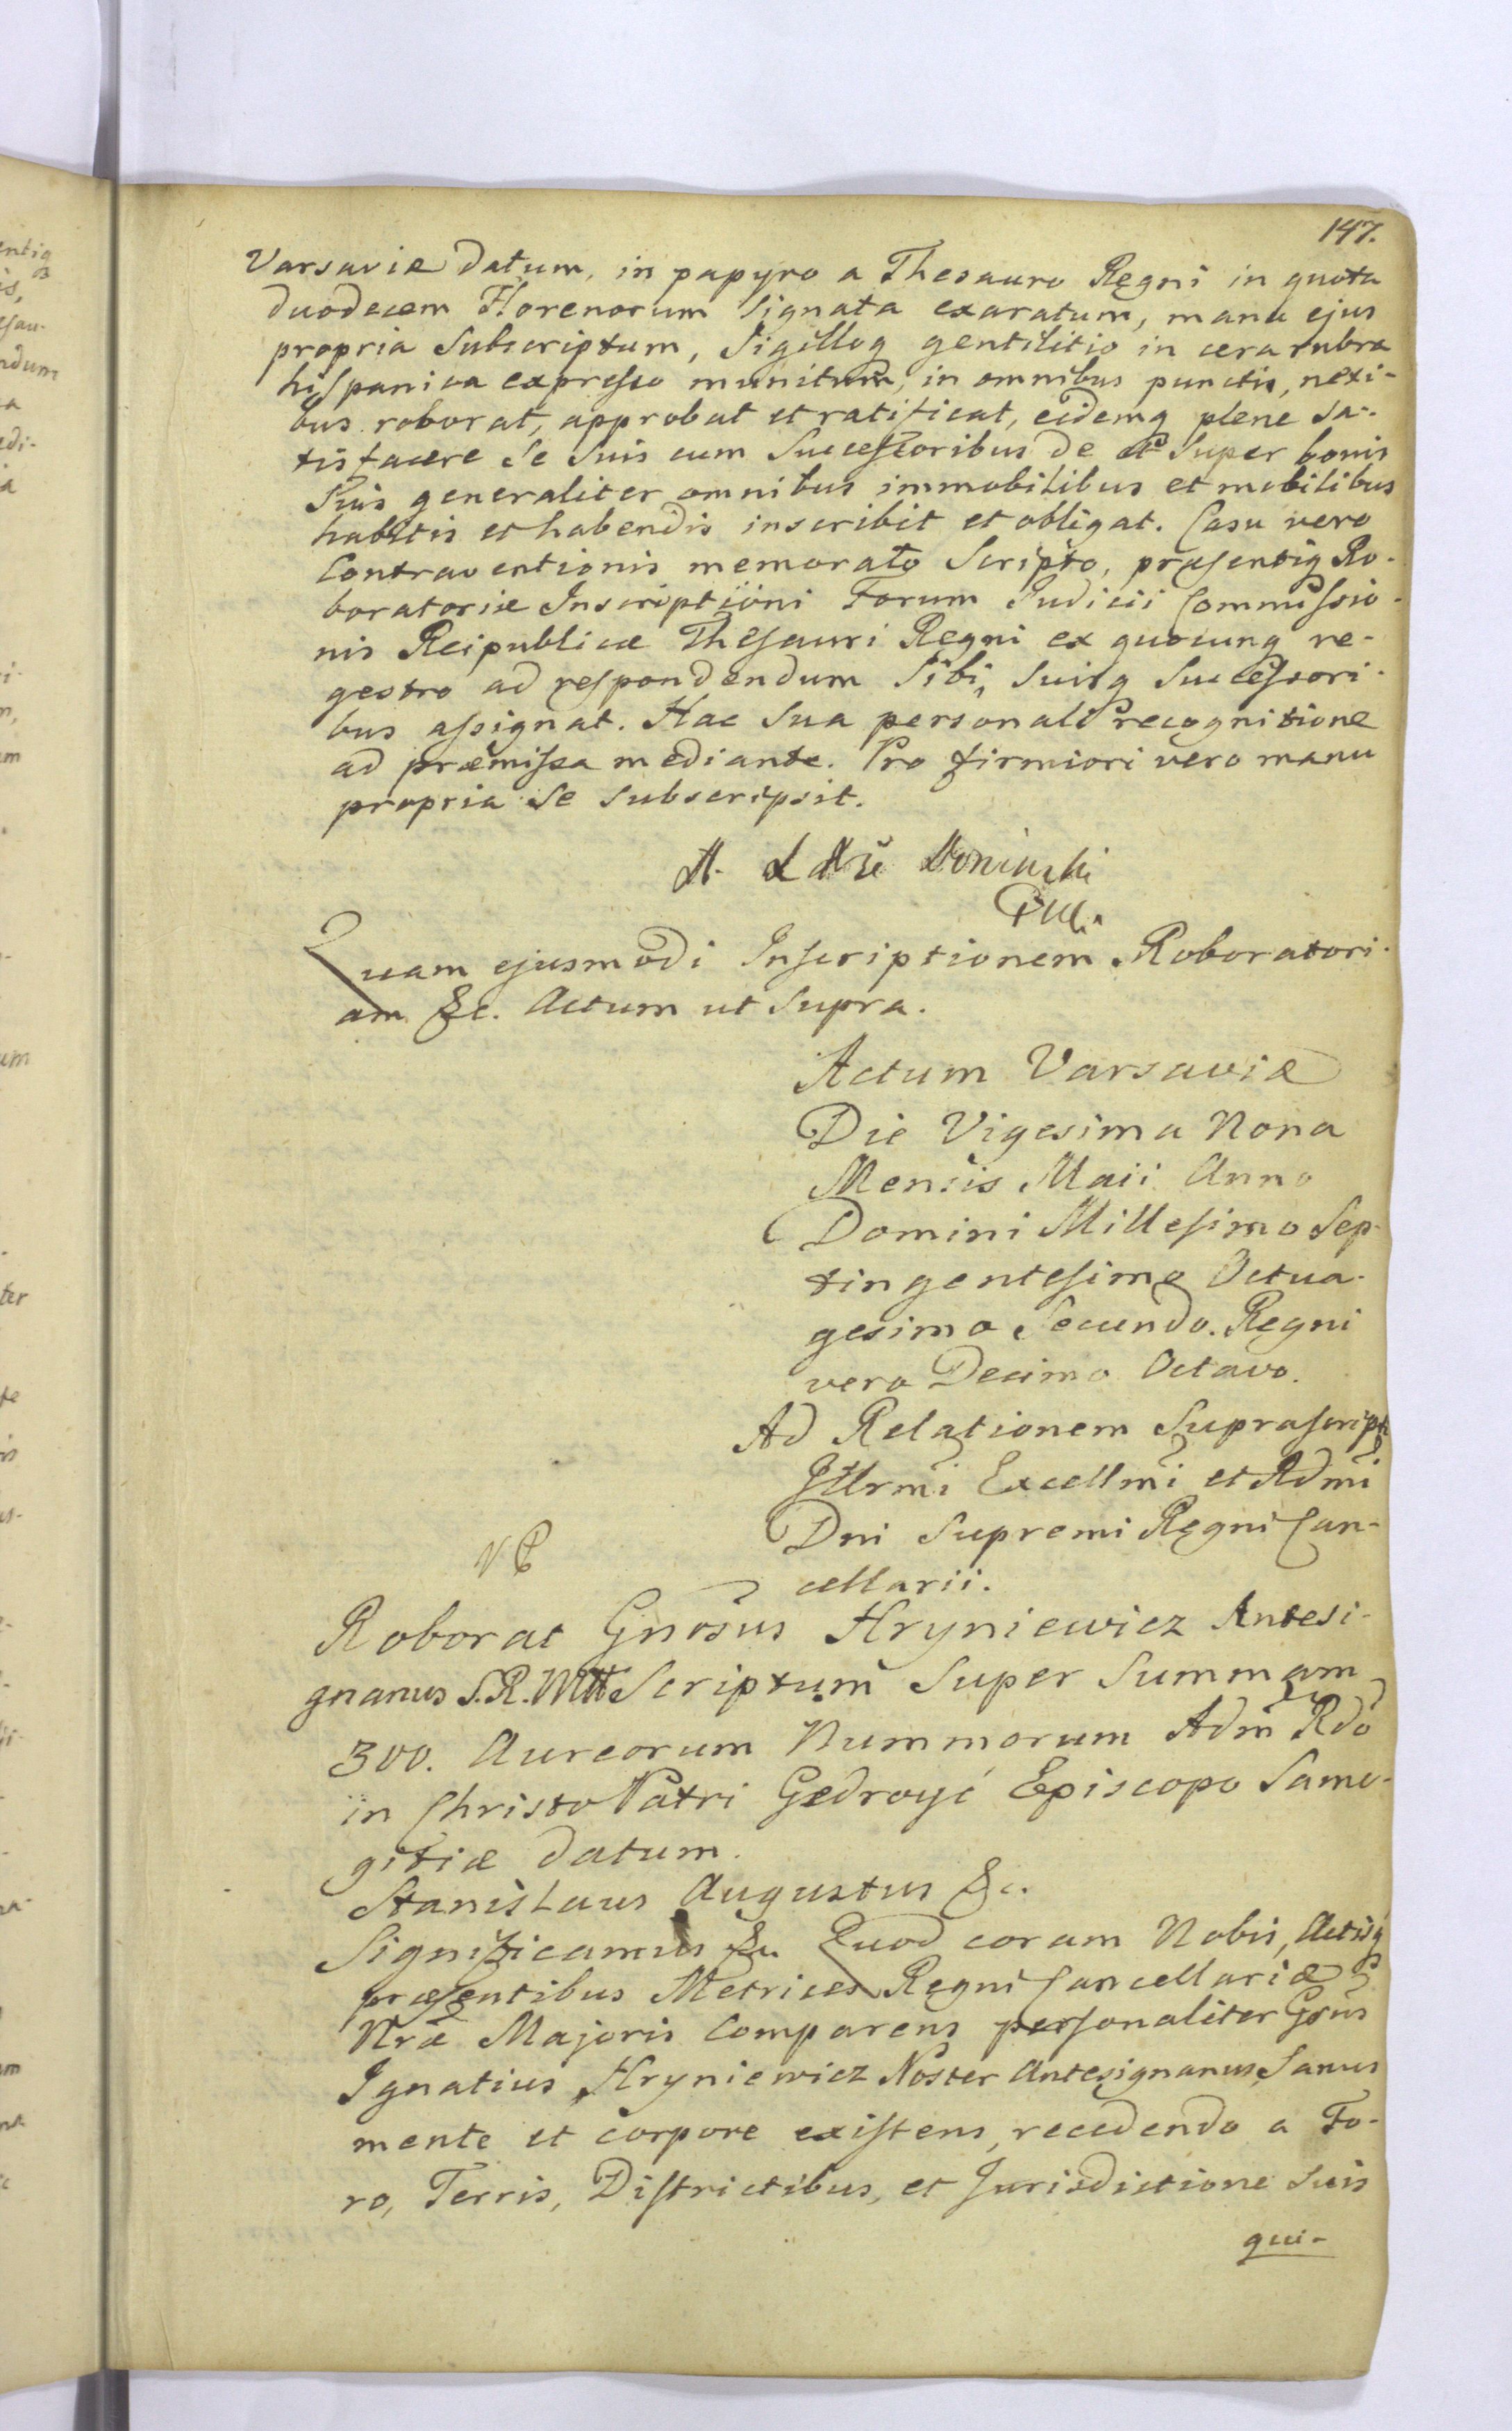 147.
Varsaviæ datum, in papyro a Thesauro Regni in quota
duodecem Florenorum signata exaratum, manu ejus
propria subscriptum, Sigilloq gentilitio in cera rubra
hispanica expresso munitum, in omnibus punctis, nexi-
bus roborat, approbat et ratificat, eidemq plene sa-
tisfacere se suis cum Successoribus de et super bonis
suis generaliter omnibus immobilibus et mobilibus
habitis et habendis inscribit et obligat. Casu vero
Contraventionis memorato Scripto, præsentiq Ro-
boratoriæ Inscriptioni Forum Judicii Commissio-
nis Reipublicæ Thesauri Regni ex quocunq re-
gestro ad respondendum sibi, suisq Successori-
bus assignat. Hac sua personali recognitione
ad præmissa mediante. Pro firmiori vero manu
propria se subscripsit.
Quam ejusmodi Inscriptionem Roboratori-
am &c. Actum ut supra.
Actum Varsaviæ
Die Vigesima Nona
Mensis Maii Anno
Domini Millesimo Sep-
tingentesimo Octua-
gesimo Secundo. Regni
vero Decimo Octavo.
Ad Relationem Suprascripti
Illrmi Excellmi et Admi
Dni Supremi Regni Can-
cellarii.
Roborat Gnosus Hryniewicz Antesi-
gnanus S. R. Mtt Scriptum super Summam
300. Aureorum Nummorum Adm Rdo
in Christo Patri Gedroyć Episcopo Samo-
gitiæ datum.
Stanislaus Augustus &c.
Significamus &c. Quod coram Nobis, Actisq
præsentibus Metrices Regni Cancellariæ
Nræ Majoris Comparens personaliter Gsus
Ignatius Hryniewicz Noster Antesignanus, Sanus
mente et corpore existens, recedendo a Fo-
ro, Terris, Districtibus, et Jurisdictione suis
qui-